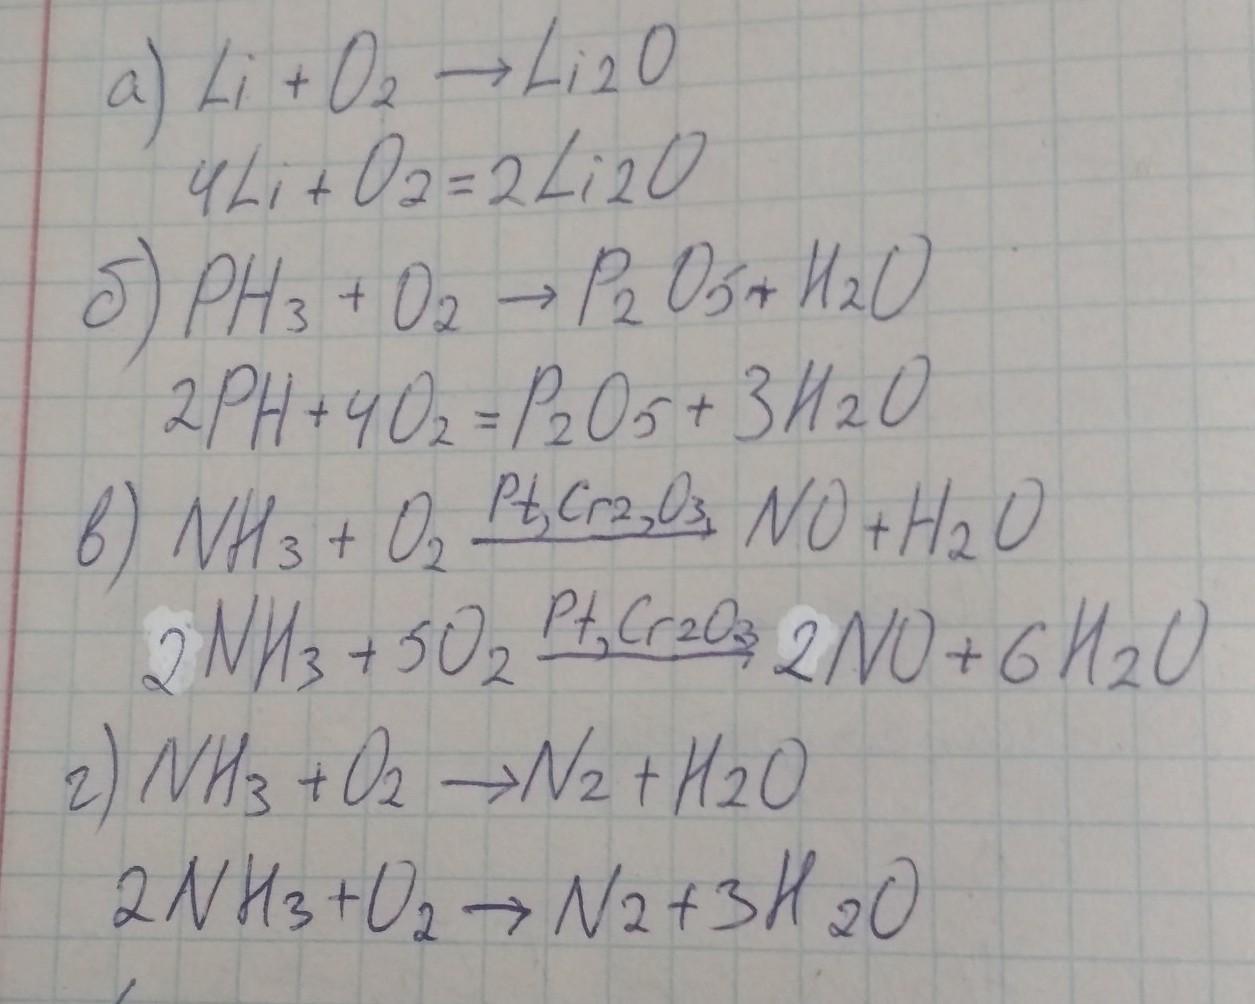 а) Li + O2 → Li2O
4Li + O2 = 2Li2O
б) PH3 + O2 → P2O5 + H2O
2PH + 4O2 = P2O5 + 3H2O
Pt, Cr2, O3
в) NH3 + O2 → NO + H2O
Pt, Cr2O3
2NH3 + 5O2 → 2NO + 6H2O
г) NH3 + O2 → N2 + H2O
2NH3 + O2 → N2 + 3H2O